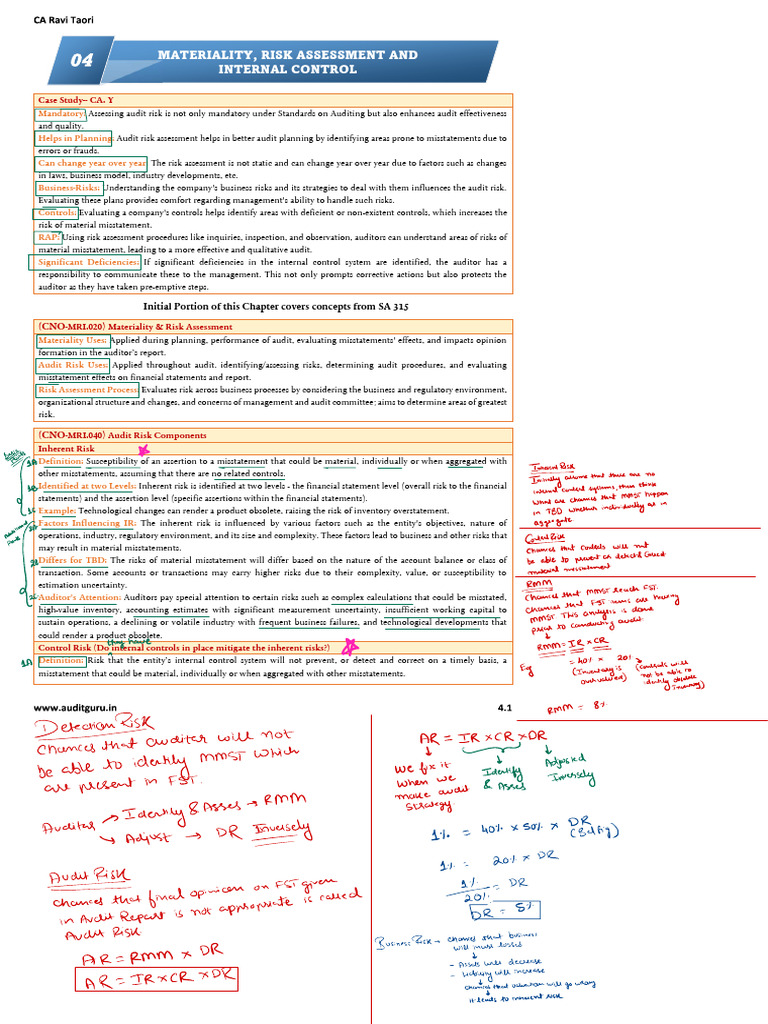 CA Ravi Taori
04
MATERIALITY, RISK ASSESSMENT AND
INTERNAL CONTROL
Case Study– CA. Y
Mandatory: Assessing audit risk is not only mandatory under Standards on Auditing but also enhances audit effectiveness
and quality.
Helps in Planning: Audit risk assessment helps in better audit planning by identifying areas prone to misstatements due to
errors or frauds.
Can change year over year: The risk assessment is not static and can change year over year due to factors such as changes
in laws, business model, industry developments, etc.
Business-Risks: Understanding the company's business risks and its strategies to deal with them influences the audit risk.
Evaluating these plans provides comfort regarding management's ability to handle such risks.
Controls: Evaluating a company's controls helps identify areas with deficient or non-existent controls, which increases the
risk of material misstatement.
RAP: Using risk assessment procedures like inquiries, inspection, and observation, auditors can understand areas of risks of
material misstatement, leading to a more effective and qualitative audit.
Significant Deficiencies: If significant deficiencies in the internal control system are identified, the auditor has a
responsibility to communicate these to the management. This not only prompts corrective actions but also protects the
auditor as they have taken pre-emptive steps.
Initial Portion of this Chapter covers concepts from SA 315
(CNO-MRI.020) Materiality & Risk Assessment
Materiality Uses: Applied during planning, performance of audit, evaluating misstatements' effects, and impacts opinion
formation in the auditor's report.
Audit Risk Uses: Applied throughout audit, identifying/assessing risks, determining audit procedures, and evaluating
misstatement effects on financial statements and report.
Risk Assessment Process: Evaluates risk across business processes by considering the business and regulatory environment,
organizational structure and changes, and concerns of management and audit committee; aims to determine areas of greatest
risk.
(CNO-MRI.040) Audit Risk Components
Inherent Risk
1A Definition: Susceptibility of an assertion to a misstatement that could be material, individually or when aggregated with
other misstatements, assuming that there are no related controls.
1B Identified at two Levels: Inherent risk is identified at two levels - the financial statement level (overall risk to the financial
statements) and the assertion level (specific assertions within the financial statements).
1C Example: Technological changes can render a product obsolete, raising the risk of inventory overstatement.
2A Factors Influencing IR: The inherent risk is influenced by various factors such as the entity's objectives, nature of
operations, industry, regulatory environment, and its size and complexity. These factors lead to business and other risks that
may result in material misstatements.
2B Differs for TBD: The risks of material misstatement will differ based on the nature of the account balance or class of
transaction. Some accounts or transactions may carry higher risks due to their complexity, value, or susceptibility to
estimation uncertainty.
2C Auditor's Attention: Auditors pay special attention to certain risks such as complex calculations that could be misstated,
high-value inventory, accounting estimates with significant measurement uncertainty, insufficient working capital to
sustain operations, a declining or volatile industry with frequent business failures, and technological developments that
could render a product obsolete.
they have
Control Risk (Do internal controls in place mitigate the inherent risks?)
1A Definition: Risk that the entity's internal control system will not prevent, or detect and correct on a timely basis, a
misstatement that could be material, individually or when aggregated with other misstatements.
Inherent Risk
Initially assume that there are no
internal control systems, then think
what are chances that MMST happen
in TBD whether individually or in
aggregate
Control Risk
Chances that controls will not
be able to prevent or detect & correct
material misstatement
RMM
Chances that MMST reach FST.
Chances that FST items are having
MMST This analysis is done
prior to conducting audit
RMM = IR × CR
Eg = 40% × 20%
(Inventory is
overvalued)
(Controls will
not be able to
identify obsolete
inventory)
RMM = 8%
www.auditguru.in
4.1
Detection Risk
Chances that auditor will not
be able to identify MMST which
are present in FST.
Auditor → Identify & Asses → RMM
→ Adjust → DR Inversely
Audit Risk
Chances that final opinion on FST given
in Audit Report is not appropriate is called
Audit Risk
AR = RMM × DR
AR = IR × CR × DR
AR = IR × CR × DR
We fix it
when we
make audit
strategy
Identify
& Asses
Adjusted
Inversely
1% = 40% × 50% × DR
(Bal fig)
1% = 20% × DR
1% = DR
20%
DR = 5%
Business Risk → Chances that business
will incur losses
- Assets will decrease
- Liability will increase
chances that valuation will go wrong
it leads to inherent risk